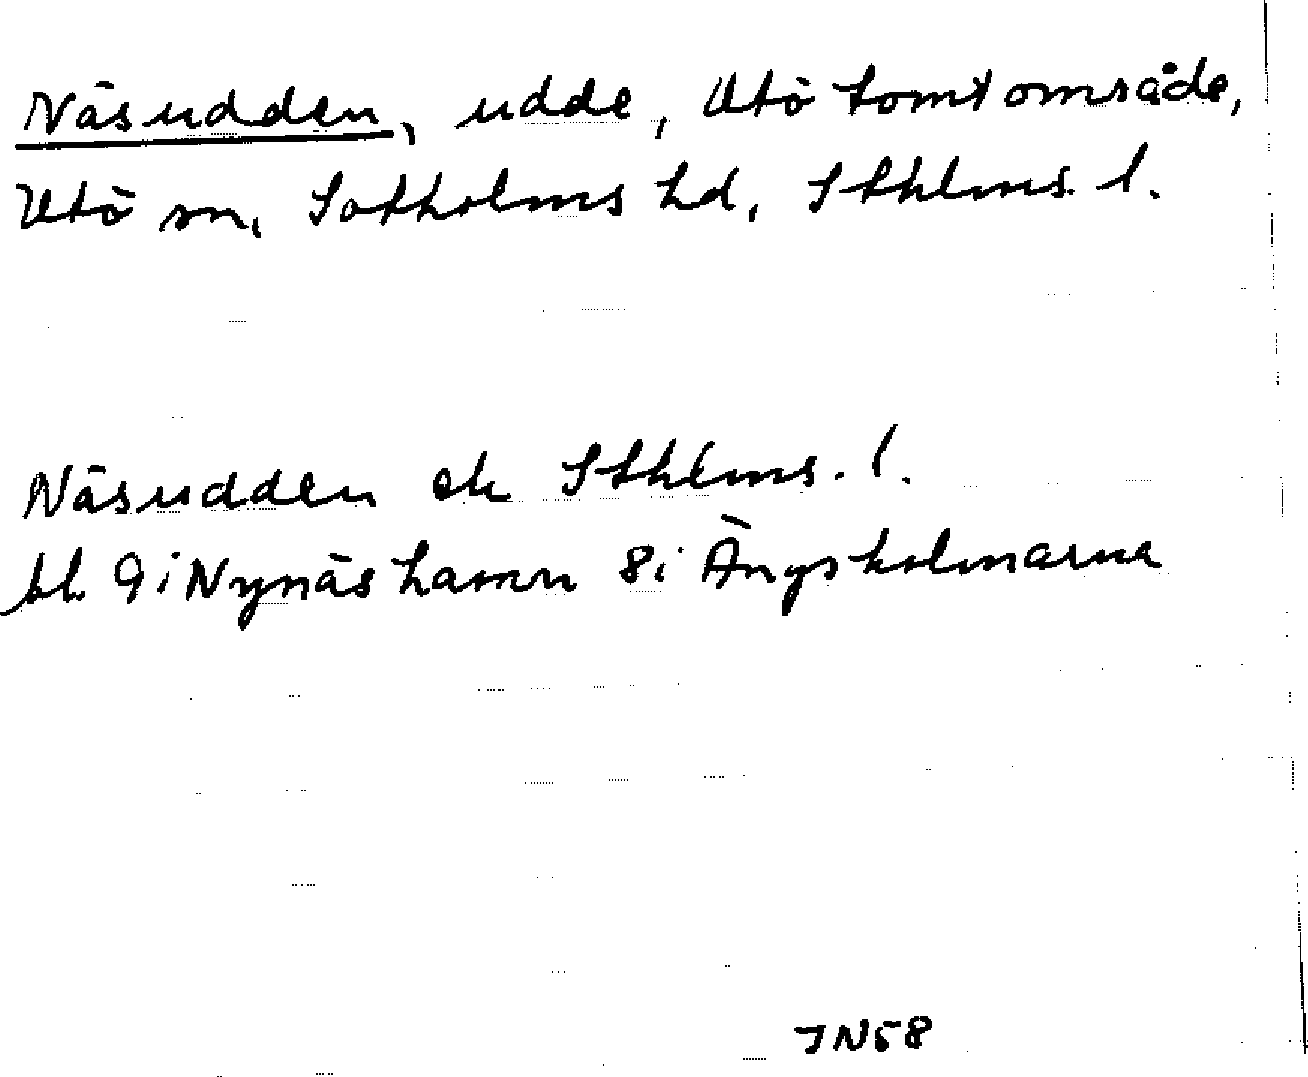 Näsudden, udde, Utö tomtområde,
Utö sn, Sotholms hd, Sthlms. l.
Näsudden ek Sthlms. l.
bl. 9i Nynäshamn 8i Ängsholmarna
JN58